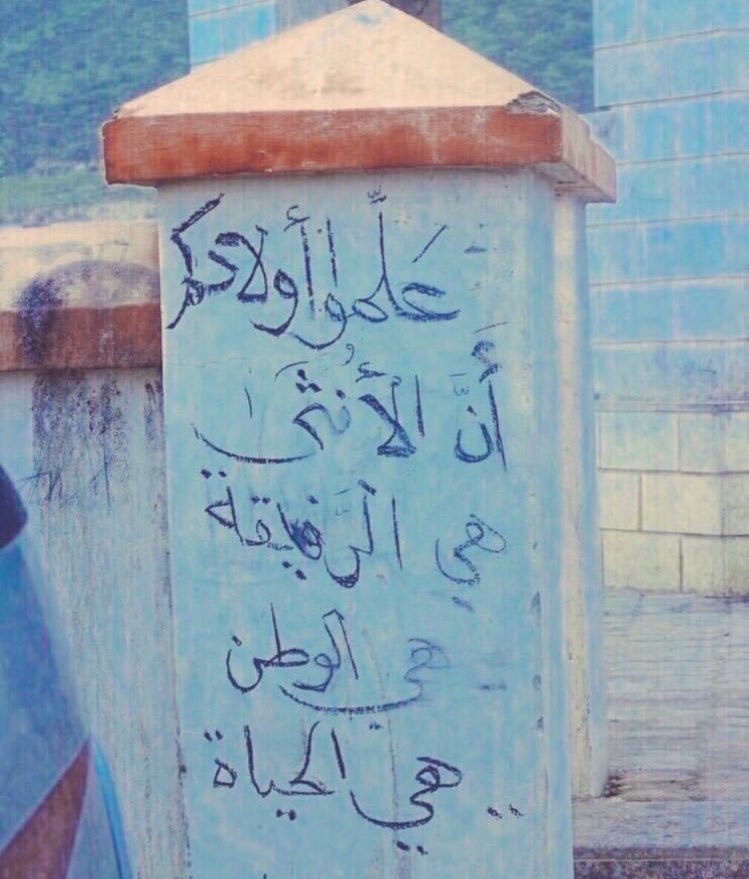 علِّموا أولادكم
أَنَّ الأُنثى
هي الرَّفيقة
هي الوطن
هي الحياة ..